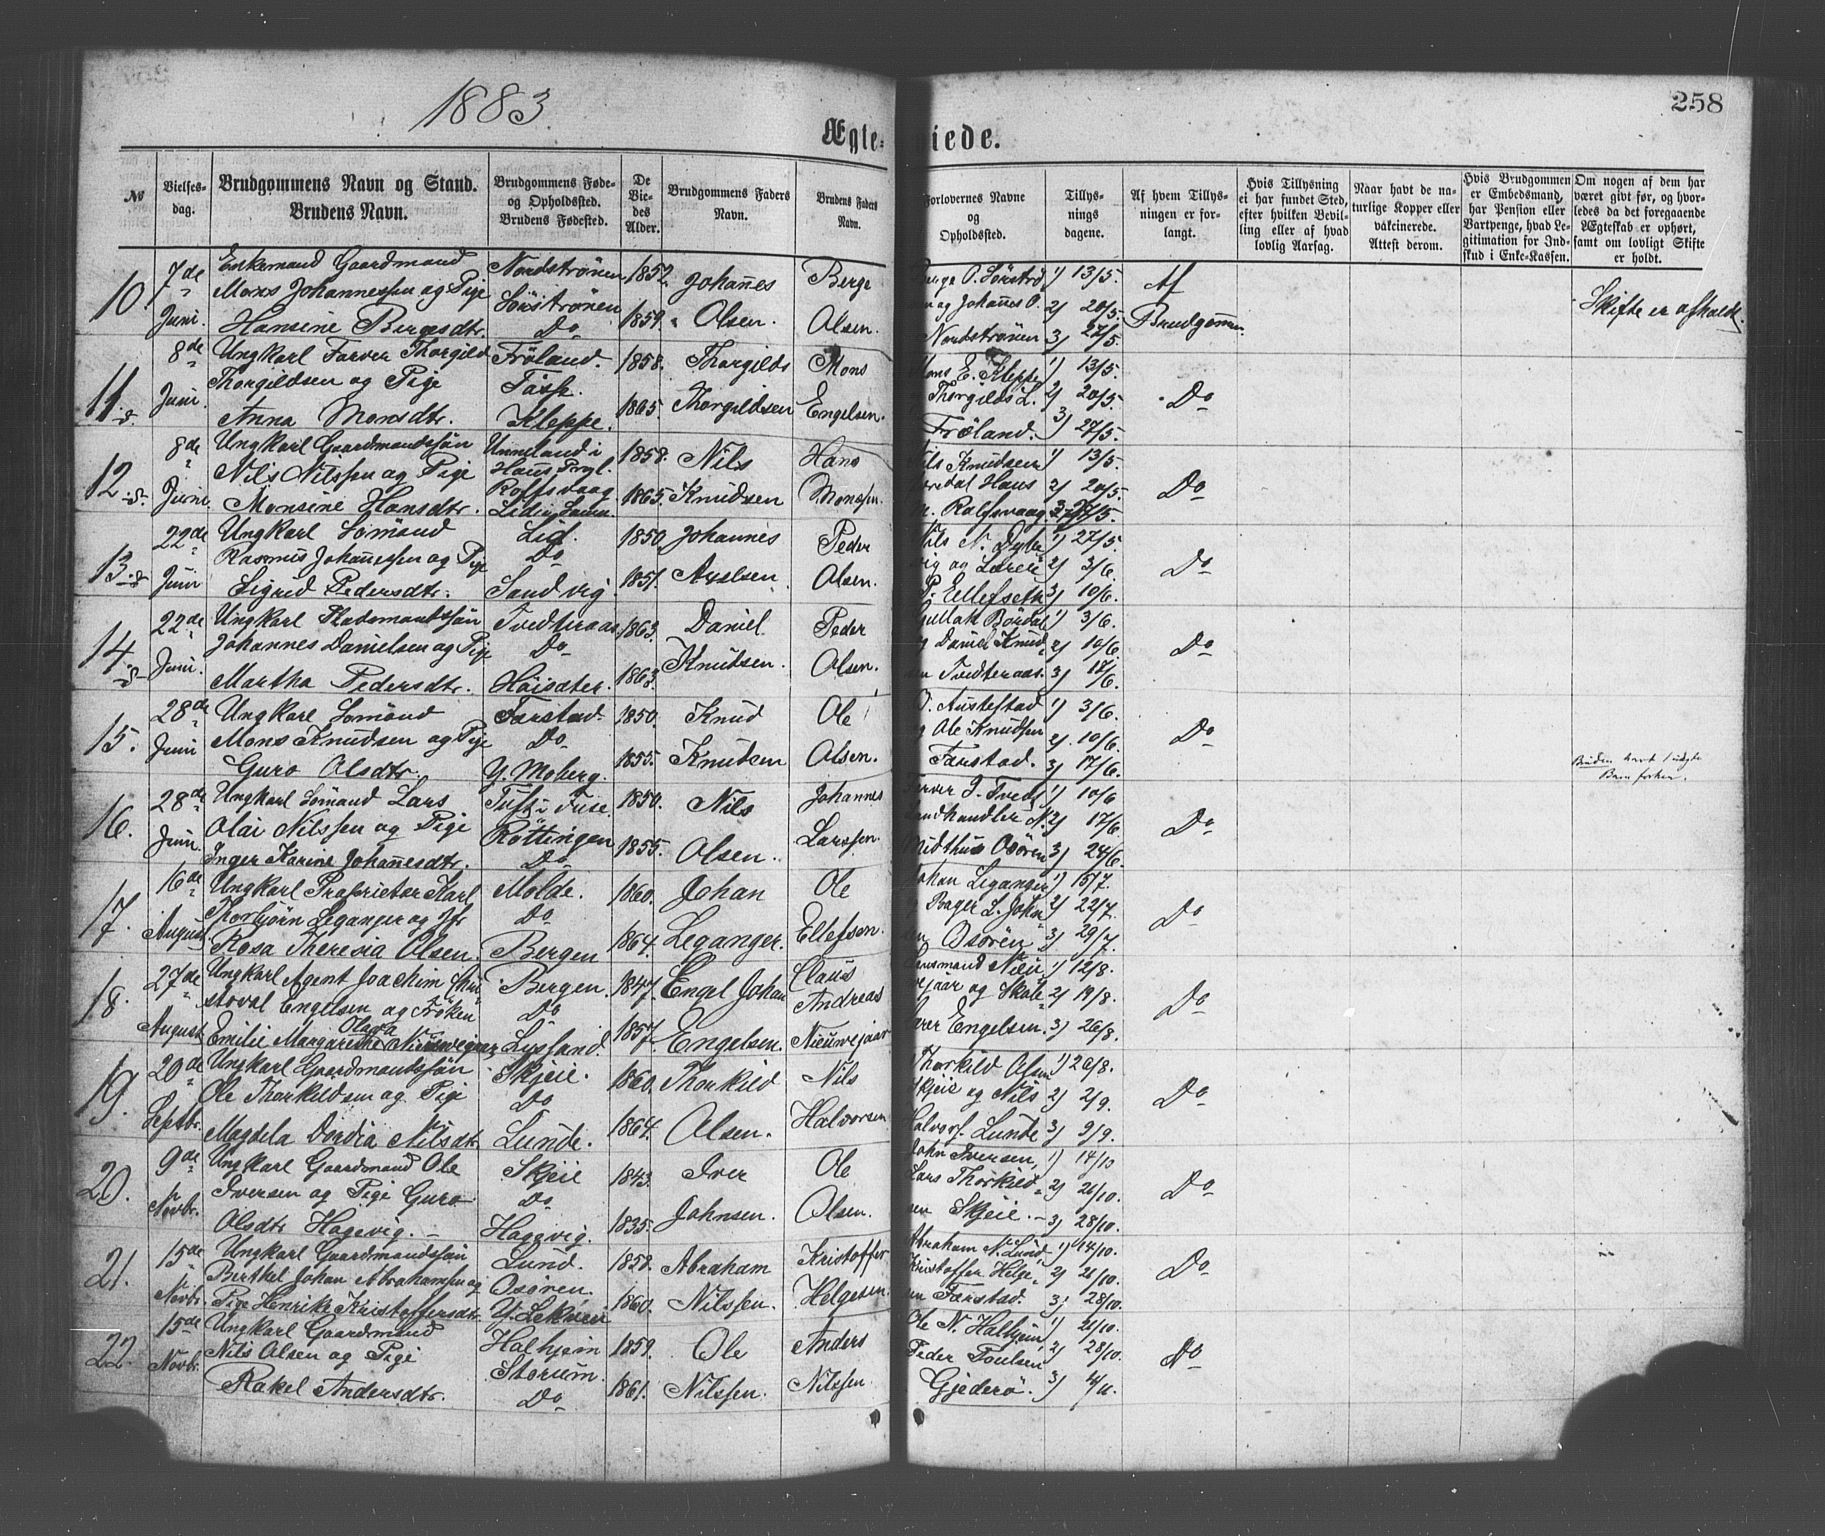 1883
258
Ægte-
iede.
№
Vielses-
dag.
Brudgommens Navn og Stand.
Brudens Navn.
Brudgommens Føde-
og Opholdssted.
Brudens Fødested.
De
Vie-
des
Alder.
Brudgommens Faders
Navn.
Brudens Faders
Navn.
Forlovernes Navne
og
Opholdssted.
Tillys-
nings
dagene.
Af hvem Tillys-
ningen er for-
langt.
Hvis Tillysning
ei har fundet Sted,
efter hvilken Bevil-
ling eller af hvad
lovlig Aarsag.
Naar havt de na-
turlige Kopper eller
vakeinerede.
Attest derom.
Hvis Brudgommen
er Embedsmand,
har Pension eller
Vartpenge, hvad Le-
gitimation for Ind-
skud i Enke-Kassen.
Om nogen af dem har
været givt før, og hvor-
ledes da det foregaaende
Ægteskab er ophørt,
samt om lovligt Skifte
er holdt.
10
7de Juni.
Enkemand Gaardmand
Mons Johannessen og Pige
Hansine Bergesdtr.
Nordstrønen
Sørstrønen
Do
1852.
1859.
Johannes
Olsen.
Berge
Olsen.
O. Sørstrø
og Johannes O.
Nordstrønen
1) 13/5.
2) 20/5.
3) 27/5.
Af
Brudgommen
Skifte er afholdt.
11.
8de Juni.
Ungkarl Farver Thorgild
Thorgildsen og Pige
Anna Monsdtr.
Frøland.
Kleppe.
1858.
1865.
Thorgilds
Thorgildsen
Mons
Engelsen.
Mons E. Kleppe
Thorgilds L.
Frøland.
1) 13/5.
2) 20/5.
3) 27/5.
Do
12
8de Juni
Ungkarl Gaardmandssøn
Nils Nilssen og Pige
Monsine Hansdtr.
Unneland i
Haus Prgl.
Rolfsvaag
1858.
1865.
Nils
Knudsen
Hans
Monssen.
Nils Knudsen
Haus
Rolfsvaag
1) 13/5.
2) 20/5.
3) 27/5.
Do
13
22de Juni
Ungkarl Sømand
Rasmus Johannessen og Pige
Sigrid Pedersdtr.
Lid.
Do
Sandvig
1850.
1851.
Johannes
Axelsen.
Peder
Olsen.
Nils N.
P. Ellefseth
1) 27/5.
2) 3/6.
3) 10/6.
Do
14
22de Juni.
Ungkarl Pladsmandssøn
Johannes Danielsen og Pige
Martha Pedersdtr.
Tvedteraas
Do
Høisæter.
1863.
1863.
Daniel
Knudsen.
Peder
Olsen.
Gullak Børdal
og Daniel Knud
en Tvedteraas.
1) 3/6.
2) 10/6
3) 17/6.
Do
15.
28de Juni
Ungkarl Sømand
Mons Knudsen og Pige
Guro Olsdtr.
Farstad.
Do
Y. Moberg.
1850.
1855.
Knud
Knudsen
Ole
Olsen.
O. Austefstad
og Ole Knudsen
Farstad.
1) 3/6.
2) 10/6.
3) 17/6.
Do
Bruden havt 1 uægte
Barn forhen.
16.
28de Juni.
Ungkarl Sømand Lars
Olai Nilssen og Pige
Inger Karine Johannesdtr.
Tuft i Fuse.
Røttingen
Do
1850.
1855.
Nils
Olsen.
Johannes
Larssen.
J. Tvedt
Landhandler N.
Midthus Osøren
1) 10/6
2) 17/6.
3) 24/6.
Do
17.
16de August
Ungkarl Proprietær Karl
Thorbjørn Leganger og Jfr
Rosa Theresia Olsen.
Molde.
Do
Bergen
1860.
1864.
Johan
Leganger.
Ole
Ellefsen.
Johan Leganger
Bager L. John
sen Osøren
1) 15/7.
2) 22/7.
3) 29/7.
Do
18.
27de August
Ungkarl Agent Joachim Chri
stoval Engelsen og Frøken
Emilie Margarethe Olava Nieuwejaar
Bergen.
Do
Lysfand.
1847.
1857.
Engel Johan
Engelsen.
Claus
Andreas
Nieuwejaar
Lensmand Nieu
wejaar og Skole
lærer Engelsen.
1) 12/8.
2) 19/8.
3) 26/8.
Do
19.
20de Septbr.
Ungkarl Gaardmandssøn
Ole Thorkildsen og Pige
Magdela Dordia Nilsdtr
Skjeie.
Do
Lunde.
1860.
1864.
Thorkild
Olsen.
Nils
Halvorsen
Thorkild Olsen
Skjeie og Nils
Halvors. Lunde
1) 26/8.
2) 2/9.
3) 9/9.
Do
20.
9de Novbr.
Ungkarl Gaardmand Ole
Iversen og Pige Guro
Olsdtr Hagevig.
Skjeie
Do
Hagevig.
1843.
1835.
Iver
Johnsen.
Ole
Olsen.
John Iversen,
Lars Thorkild
sen Skjeie.
1) 14/10
2) 21/10.
3) 28/10.
Do
21.
15de Novbr.
Ungkarl Gaardmandssøn
Berthel Johan Abrahamsen og
Pige Henrikke Kristoffersdtr.
Lund.
Osøren.
1858.
1860.
Abraham
Nilssen.
Kristoffer
Helgesen
Abraham N. Lund
Kristoffer Helge
sen Farstad.
1) 14/10.
2) 21/10.
3) 28/10.
Do
22.
15de Novbr.
Ungkarl Gaardmand
Nils Olsen og Pige
Rakel Andersdtr.
Halhjem
Storum.
Do
1859.
1861.
Ole
Nilssen.
Anders
Nilssen.
Ole N. Halhjem
Peder Poulsen
Gjederø.
1) 21/10.
2) 28/10.
3) 4/11.
Do